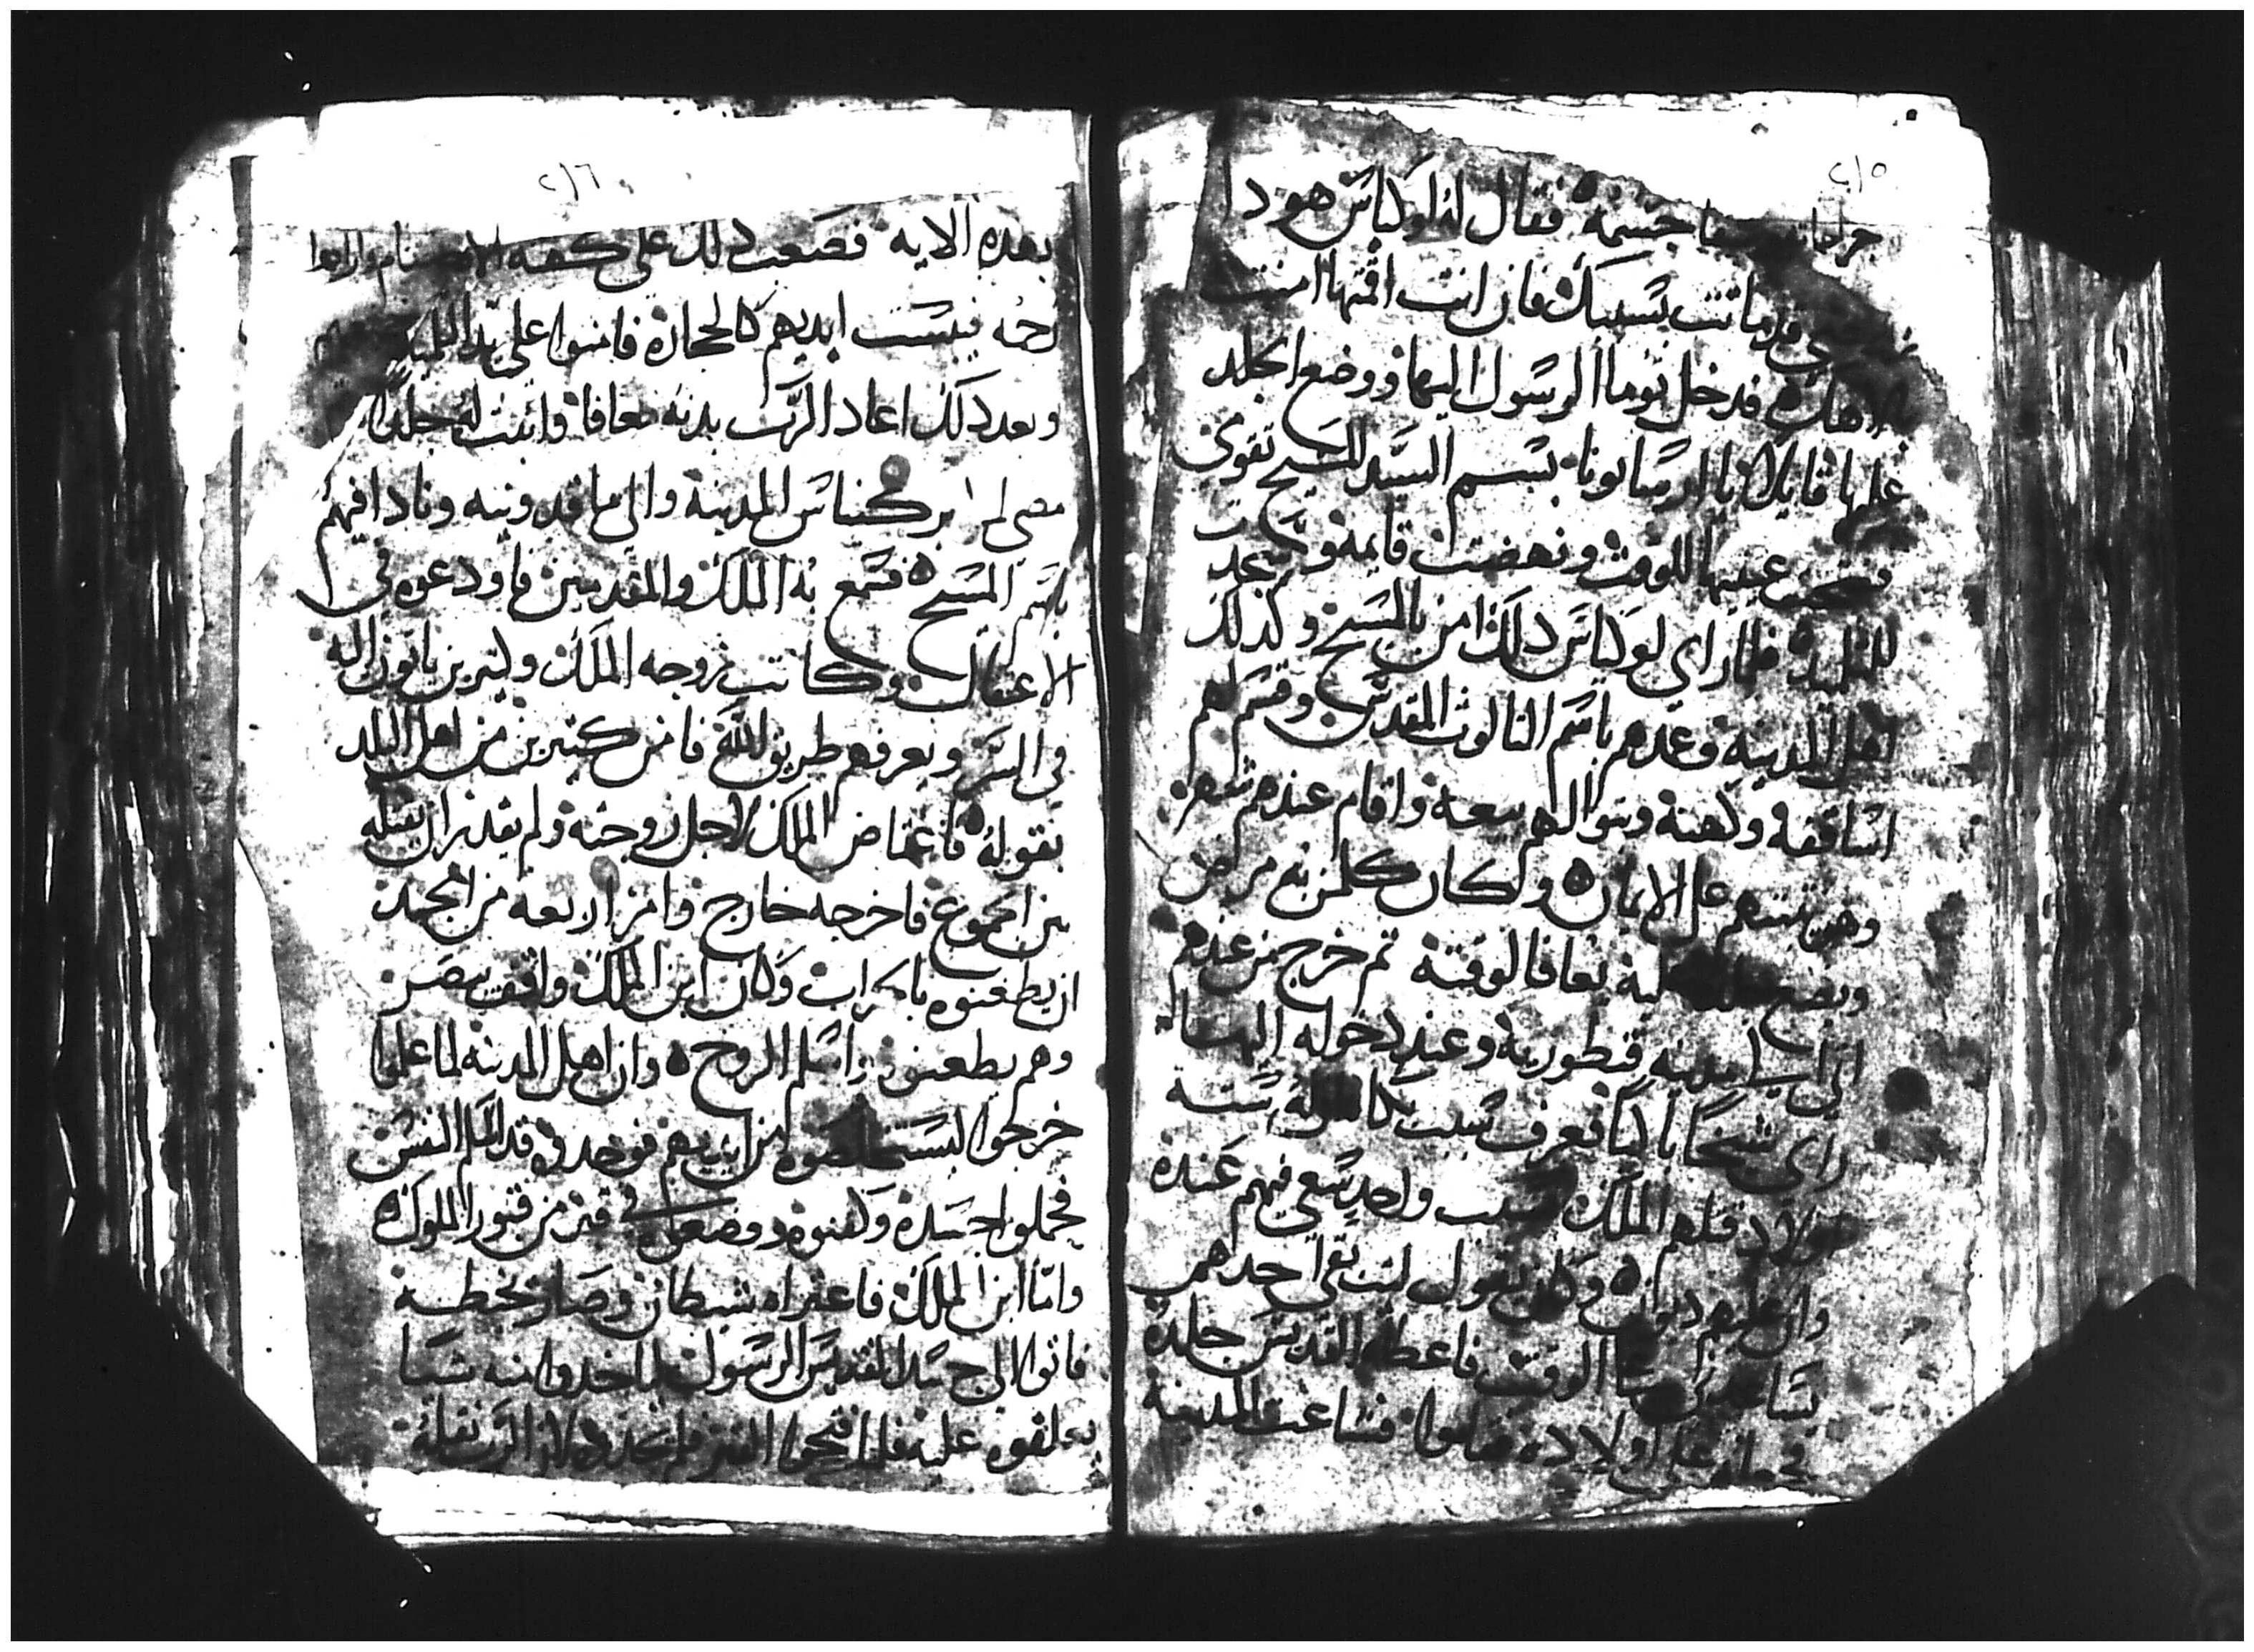 ٢١٥
جراحات جسمه فقال له لوكياس هودا
قد ماتت بسببك فان انت اقمتها امنت
فدخل توما الرسول اليها ووضع الجلد
عليها قايلا يا ارسابونا بسم السيد المسيح تقومي
عينيها للوقت ونهضت قايمة وسجدت
للتلميذ فلما راي لوكياس ذلك امن بالمسيح وكذلك
اهل المدينة وعمدهم باسم الثالوث المقدس وقسم لهم
اساقفة وكهنة وبنوا لهم بيعة واقام عندهم شهور
وهو يثبتهم على الايمان ولكان كلمن به مرض
ويضع عليه يعافا لوقته ثم خرج من عندهم
الي مدينة قنطورية وعند دخوله اليها
راي شيخا باكيا فعرف سبب بكاه له ستة
اولاد قتلهم الملك بسبب واحد سعي فيهم عنده
وان عليهم ديون وكان يقول ليت بقي احدهم
الوقت فاعطاه القديس جلده
فجعله على اولاده فقاموا فشاعت المدينة
٢١٦
بهذه الايه فصعب ذلك على كهنة الاصنام وارادوا
رجمه فيبست ايديهم كالحجارة فامنوا على يد التلميذ
وبعد ذلك اعاد الرب بدنه معافا وانبت له جلدا
مضى الى بركيناس المدينة والى ماقدونيه ونادا فيهم
باسم المسيح فسمع به الملك والمقدمين فاودعوه في
الاعتقال وكانت زوجه الملك وكثيرين ياتون اليه
في السر ويعرفهم طريق الله فامن كثيرين من اهل البلد
بقوله فاغتاض الملك لاجل زوجته ولم يقدر ان يقتله
بين الجموع فاخرجه خارج وامر اربعة من الجند
ان يطعنوه بالحراب وكان ابن الملك واقف يبصر
وهم يطعنون واسلم الروح وان اهل المدينه لما علموا
خرجوا ليستخلصوه من ايديهم فوجدوه قد اسلم النفس
فحملوا جسده وكفنوه ووضعوه في قبر من قبور الملوك
واما ابن الملك فاعتراه شيطان وصار يخطبه
فاتوا الى جسد القديس الرسول لياخدوا منه شيا
يعلقوه عليه فلما فتحوا القبر فلم يجدوه لان الرب نقله